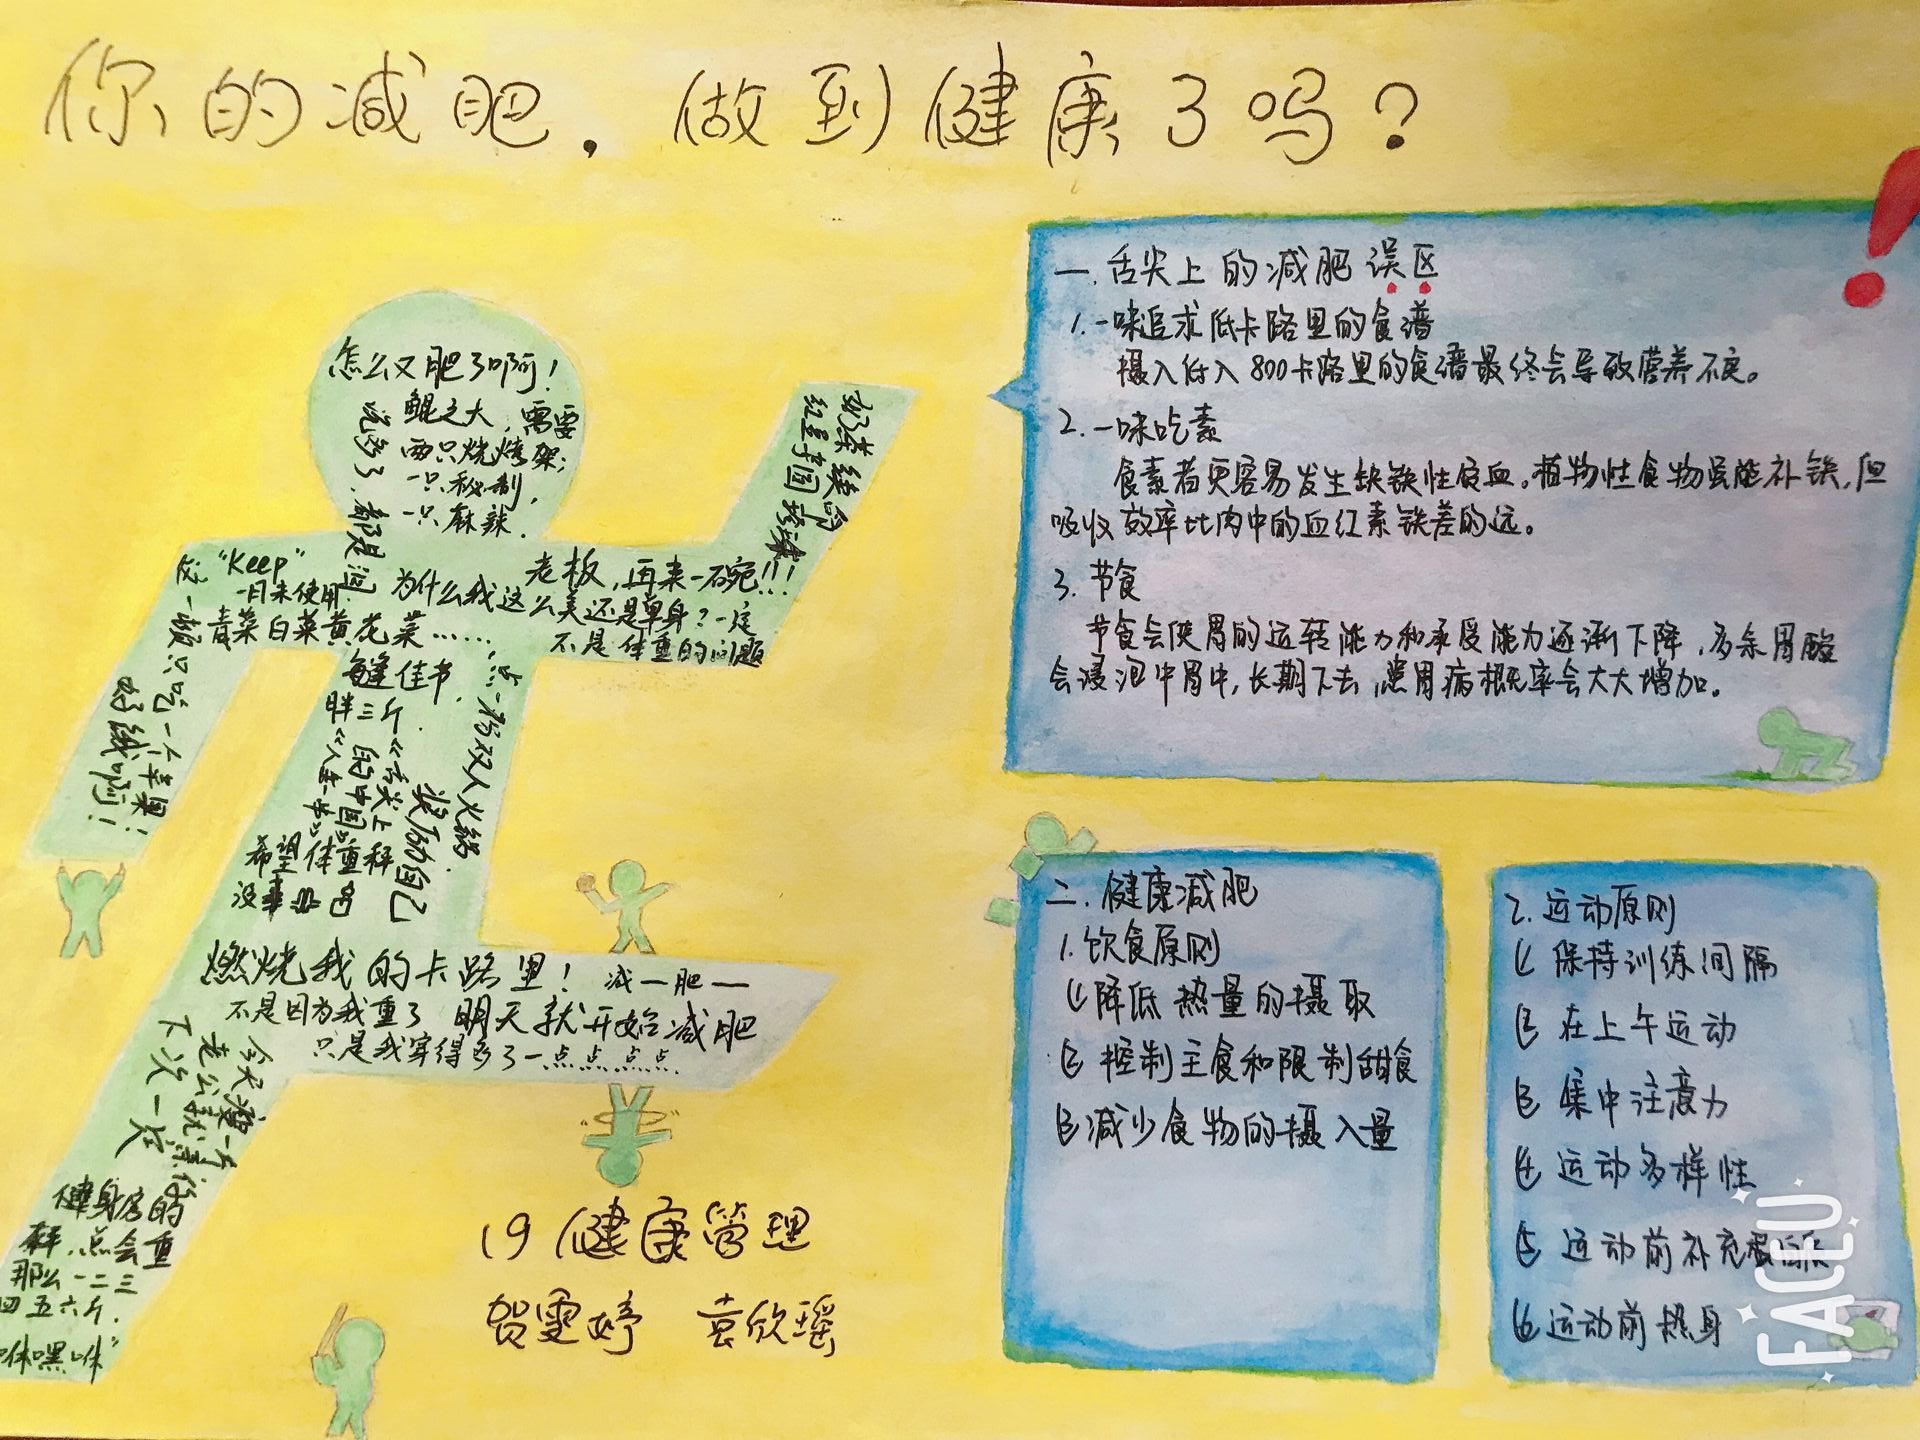 你的减肥，做到健康了吗？
怎么又肥了啊！
鲲之大，需要
两只烧烤架；
一只秘制，
一只麻辣．
说多了，都是泪
奶茶续命
红星李国珍藻
老板，再来一碗!!!
为什么我这么美还是单身？一定
不是体重的问题
"Keep"
一月未使用
青菜白菜黄花菜……
这一顿只吃一个苹果！
好饿啊！
每逢佳节，
胖三斤．
点一份双人火锅
奖励自己
《舌尖上
的中国》
希望体重秤
没事吧
燃烧我的卡路里！
减一肥一
不是因为我重了
明天就开始减肥
只是我穿得多了一点点点点．
健身房的
秤，点会重
那么一二三
四五六斤．
19健康管理
贺雯婷 袁欣瑶
一．舌尖上的减肥误区
1.一味追求低卡路里的食谱
摄入低入800卡路里的食谱最终会导致营养不良。
2.一味吃素
食素者更容易发生缺铁性贫血。植物性食物虽能补铁，但
吸收效率比肉中的血红素铁差的远。
3.节食
节食会使胃的运转能力和承受能力逐渐下降，多余胃酸
会浸泡中胃中，长期下去，患胃病概率会大大增加。
二．健康减肥
1.饮食原则
⑴降低热量的摄取
⑵控制主食和限制甜食
⑶减少食物的摄入量
2.运动原则
⑴保持训练间隔
⑵在上午运动
⑶集中注意力
⑷运动多样性
⑸运动前补充蛋白质
⑹运动前热身
FACEU